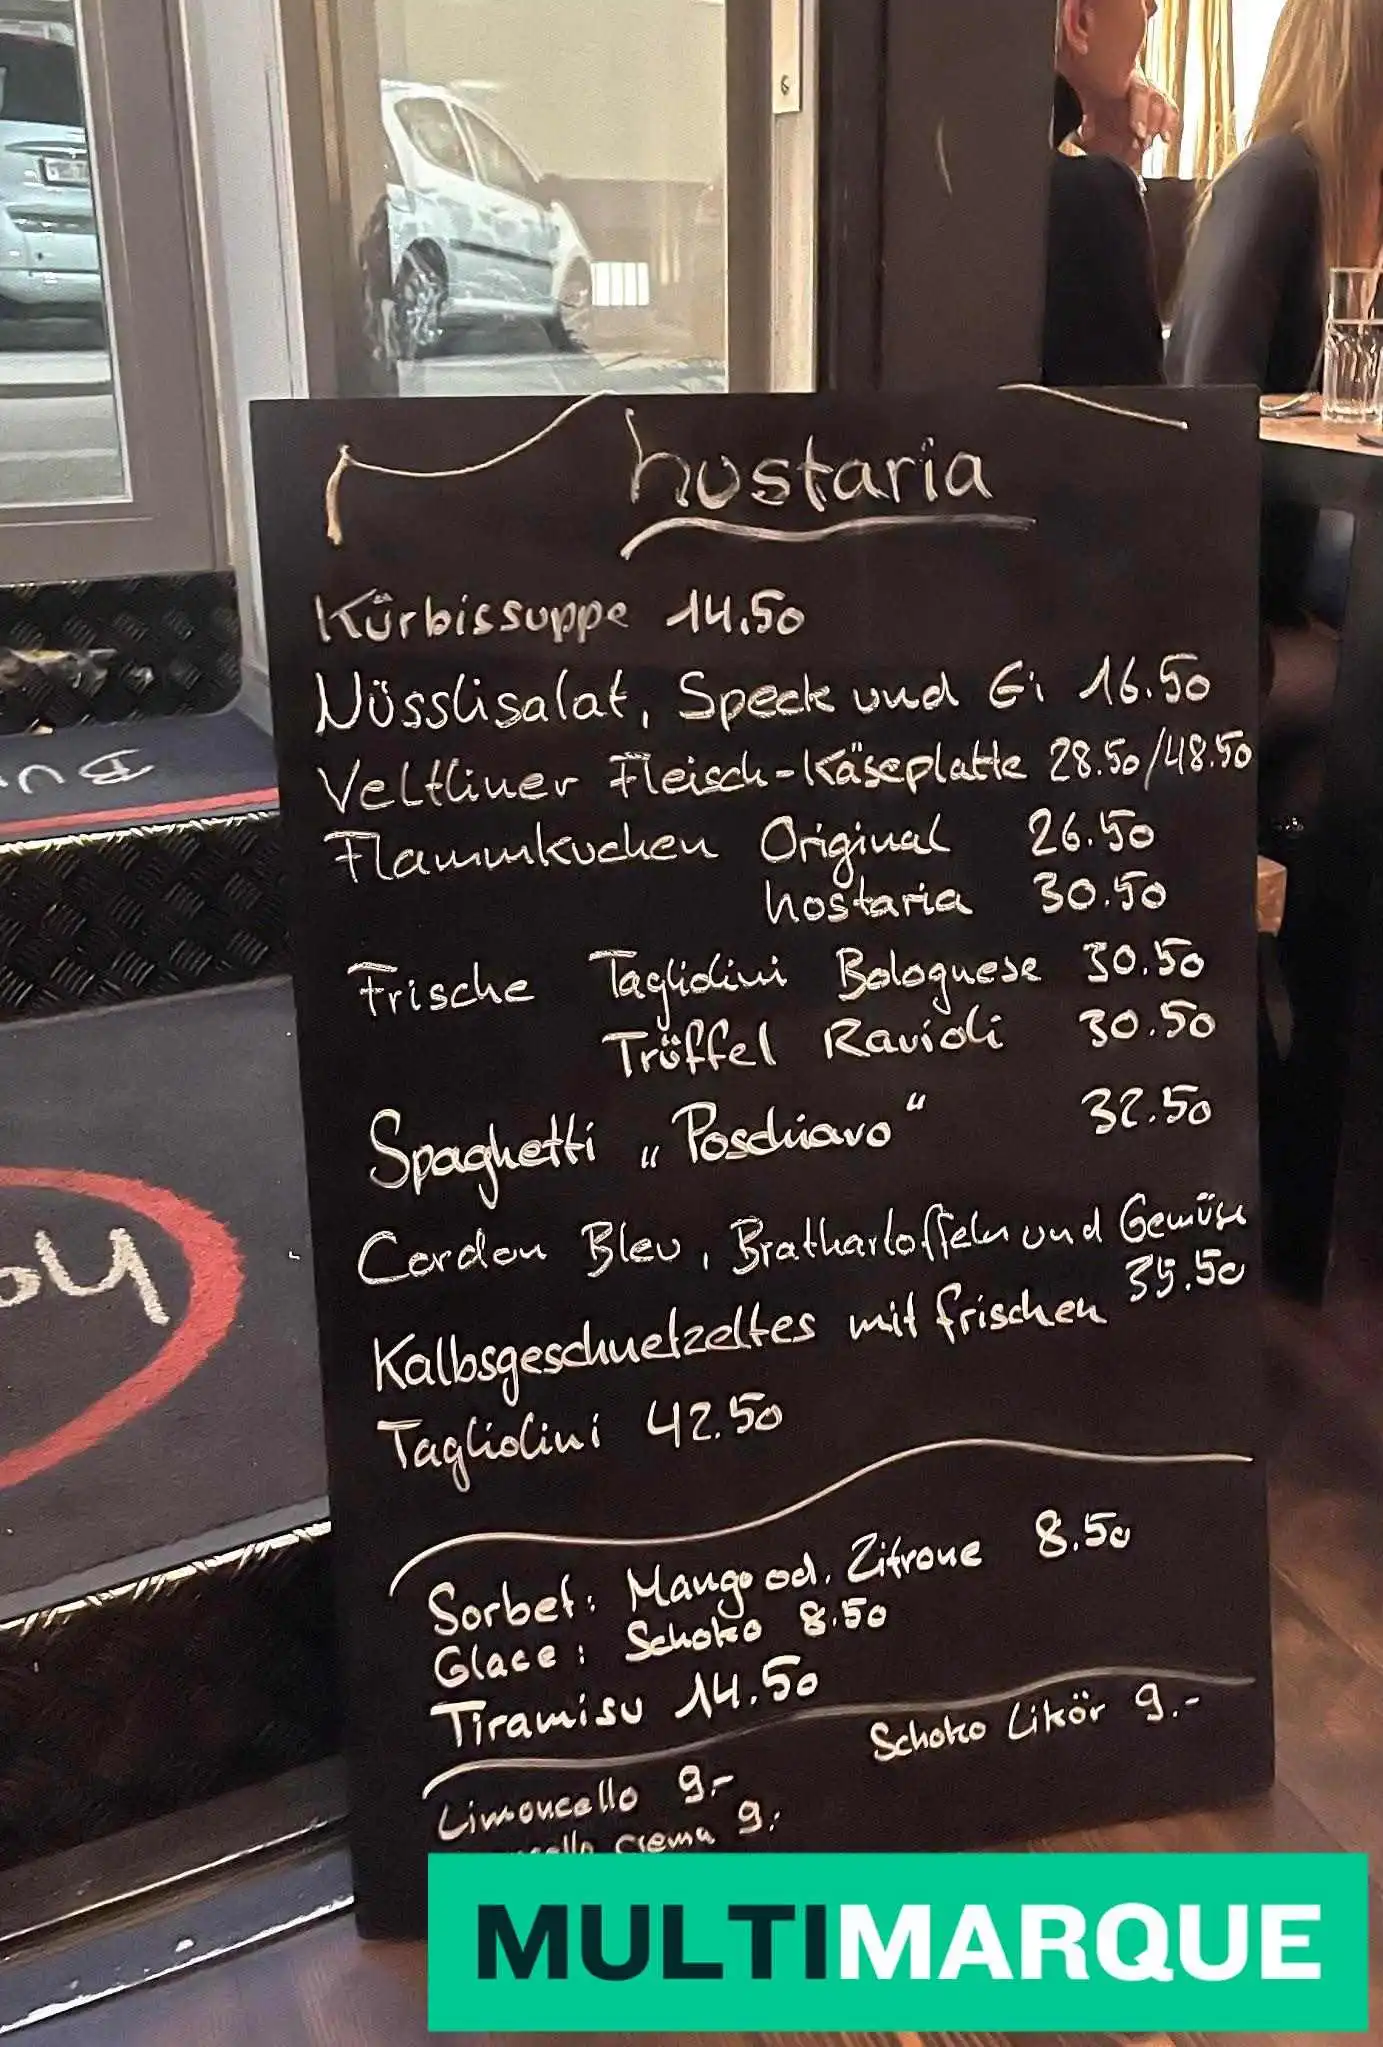 hostaria
Kürbissuppe 14.50
Nüsslisalat, Speck und Ei 16.50
Veltliner Fleisch-Käseplatte 28.50/48.50
Flammkuchen Original 26.50
hostaria 30.50
Frische Tagliolini Bolognese 30.50
Trüffel Ravioli 30.50
Spaghetti „Poschiavo“ 32.50
Cordon Bleu, Bratkartoffeln und Gemüse
35.50
Kalbsgeschnetzeltes mit frischen
Tagliolini 42.50
Sorbet: Mango od. Zitrone 8.50
Glace: Schoko 8.50
Tiramisu 14.50
Schoko Likör 9.-
Limoncello 9.-
crema 9.-
MULTIMARQUE